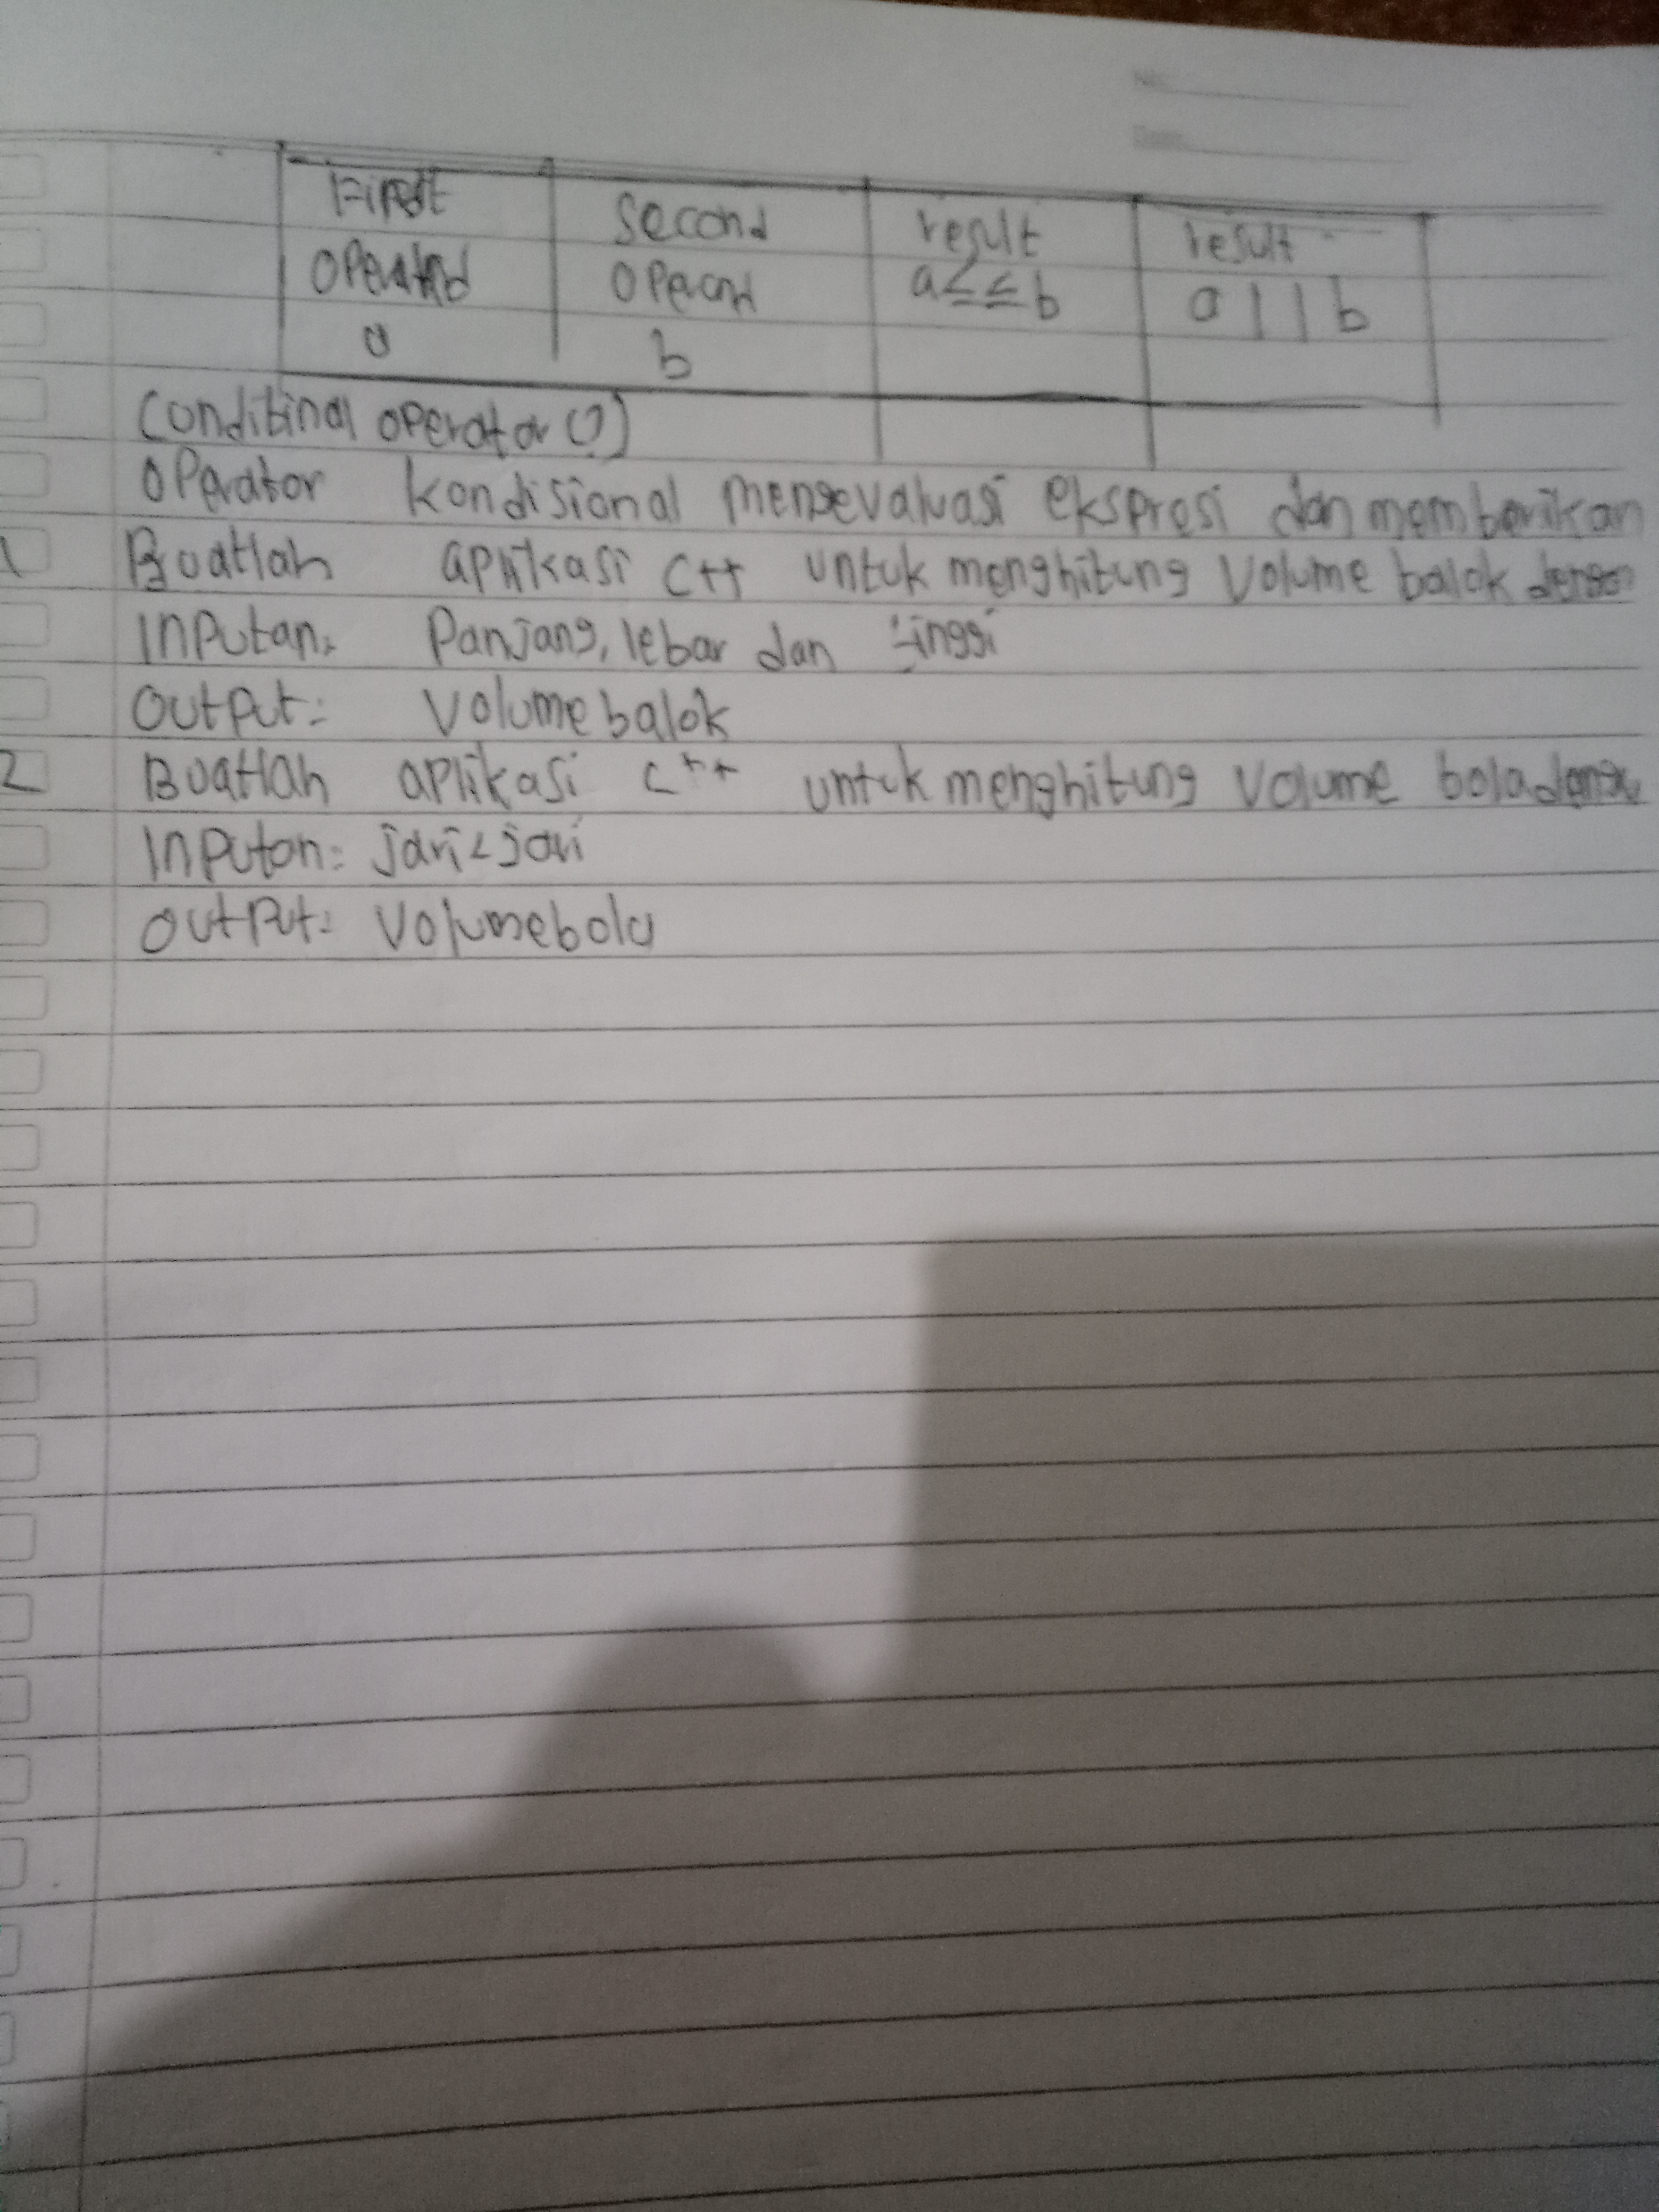 First Second result result
operand operand a&&b a||b
a b
Conditinal operator (?)
Operator kondisional mengevaluasi ekspresi dan memberikan
1 Buatlah aplikasi C++ untuk menghitung Volume balok dengan
Inputan: Panjang, lebar dan tinggi
Output: Volume balok
2 Buatlah aplikasi C++ untuk menghitung Volume bola dengan
Inputan: jari2 jari
Output: Volume bola